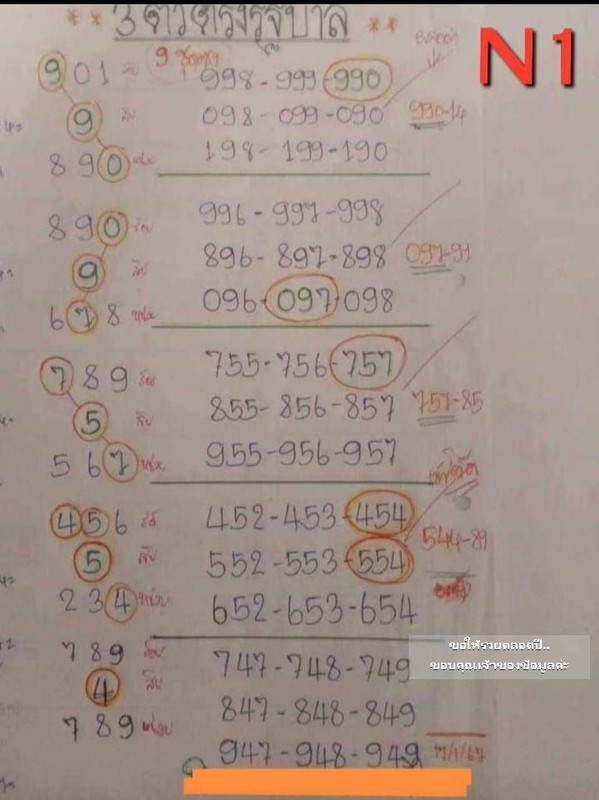 ** 3 ตัวตรงรัฐบาล **
N1
901 ร้อย 998-999-990
9 สิบ 098-099-090 990-14
890 หน่วย 198-199-190
890 ร้อย 996-997-998
9 สิบ 896-897-898 097-91
678 หน่วย 096-097-098
789 ร้อย 755-756-757
5 สิบ 855-856-857 757-85
567 หน่วย 955-956-957
456 ร้อย 452-453-454
5 สิบ 552-553-554 544-89
234 หน่วย 652-653-654
789 ร้อย 747-748-749
4 สิบ 847-848-849
789 หน่วย 947-948-949 17/1/67
ขอให้รวยตลอดปี..
ขอบคุณเจ้าของข้อมูลค่ะ